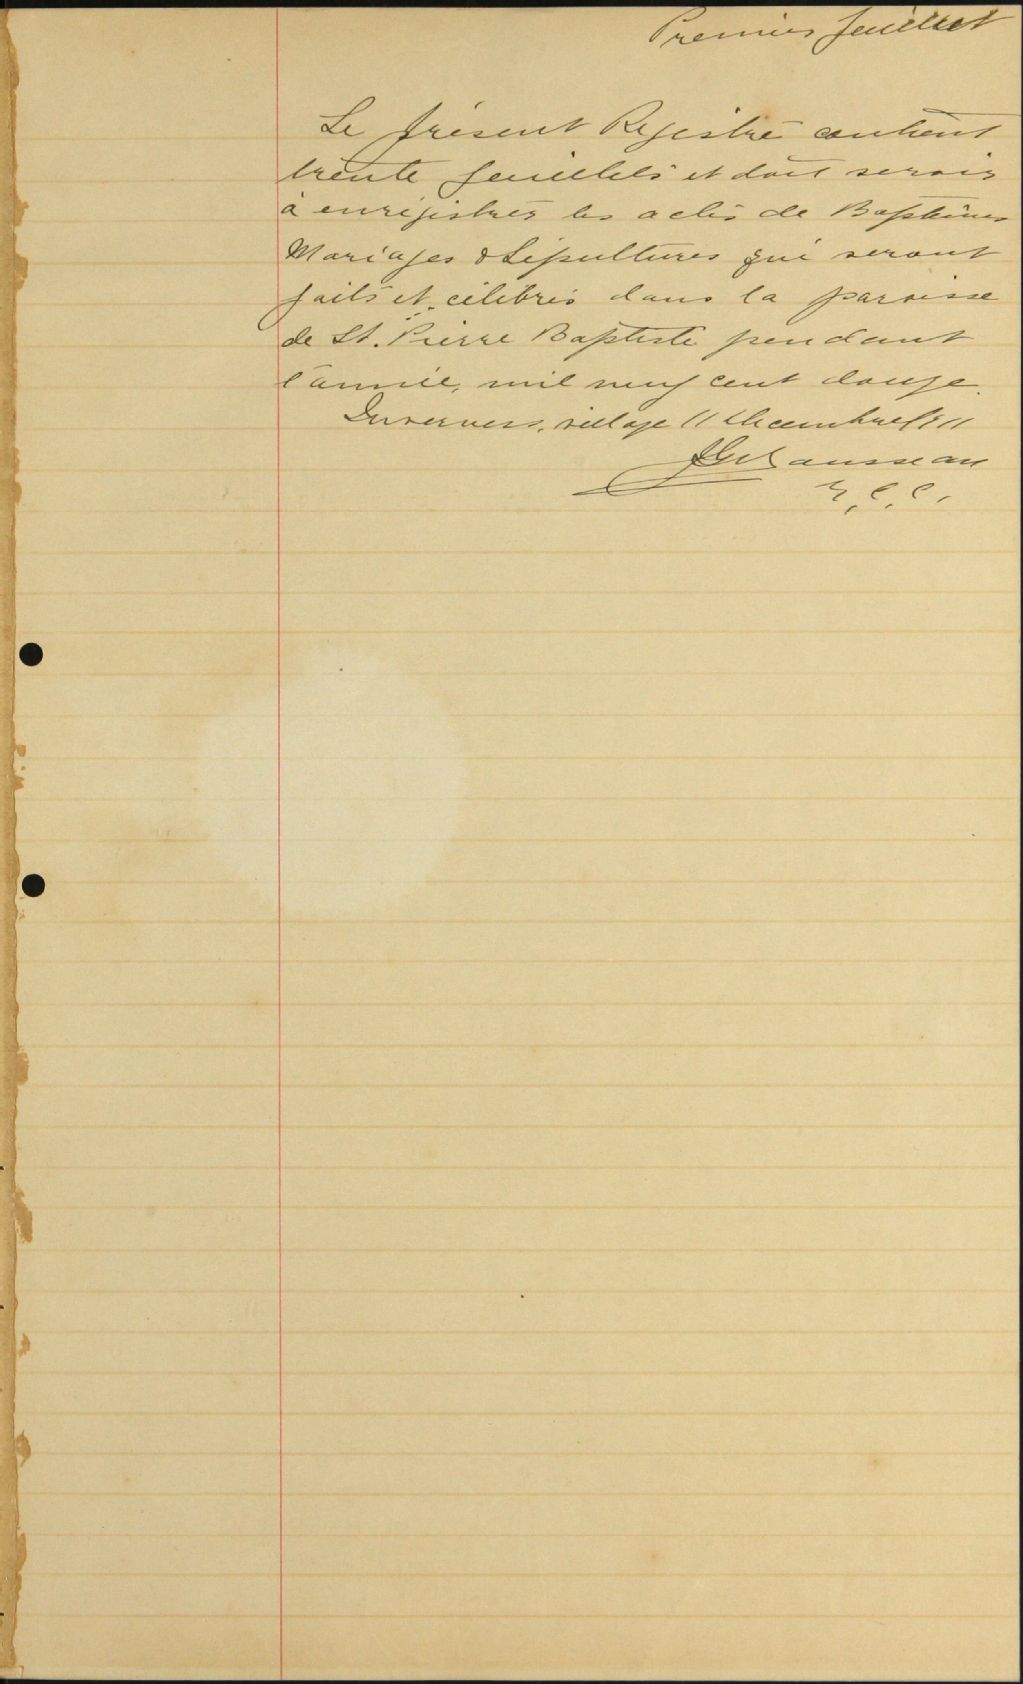 Premier feuillet
Le présent Registre contient
trente feuillets et doit servir
à enregistrer les actes de Baptêmes
Mariages & Sépultures qui seront
faits et célébrés dans la paroisse
de St. Pierre Baptiste pendant
l'année, mil neuf cent douze.
Inverness, village 11 Decembre 1911
Rousseau
C. C.